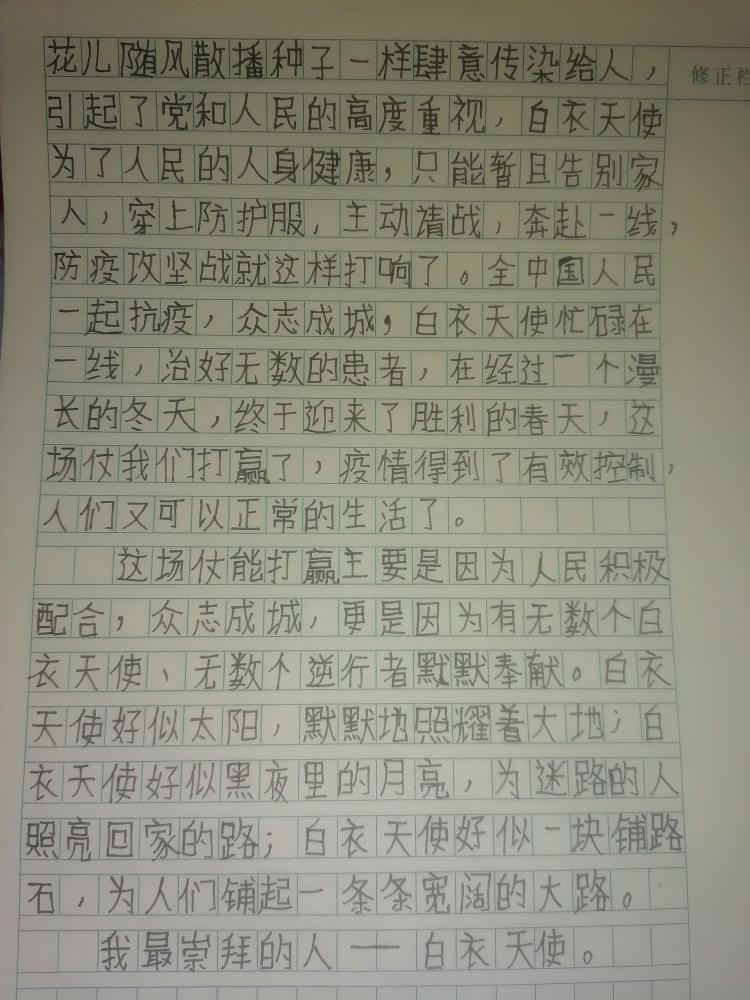 花儿随风散播种子一样肆意传染给人，
修正栏
引起了党和人民的高度重视，白衣天使
为了人民的人身健康，只能暂且告别家
人，穿上防护服，主动请战，奔赴一线，
防疫攻坚战就这样打响了。全中国人民
一起抗疫，众志成城，白衣天使忙碌在
一线，治好无数的患者，在经过一个漫
长的冬天，终于迎来了胜利的春天，这
场仗我们打赢了，疫情得到了有效控制，
人们又可以正常的生活了。
这场仗能打赢主要是因为人民积极
配合，众志成城，更是因为有无数个白
衣天使、无数个逆行者默默奉献。白衣
天使好似太阳，默默地照耀着大地；白
衣天使好似黑夜里的月亮，为迷路的人
照亮回家的路；白衣天使好似一块铺路
石，为人们铺起一条条宽阔的大路。
我最崇拜的人——白衣天使。